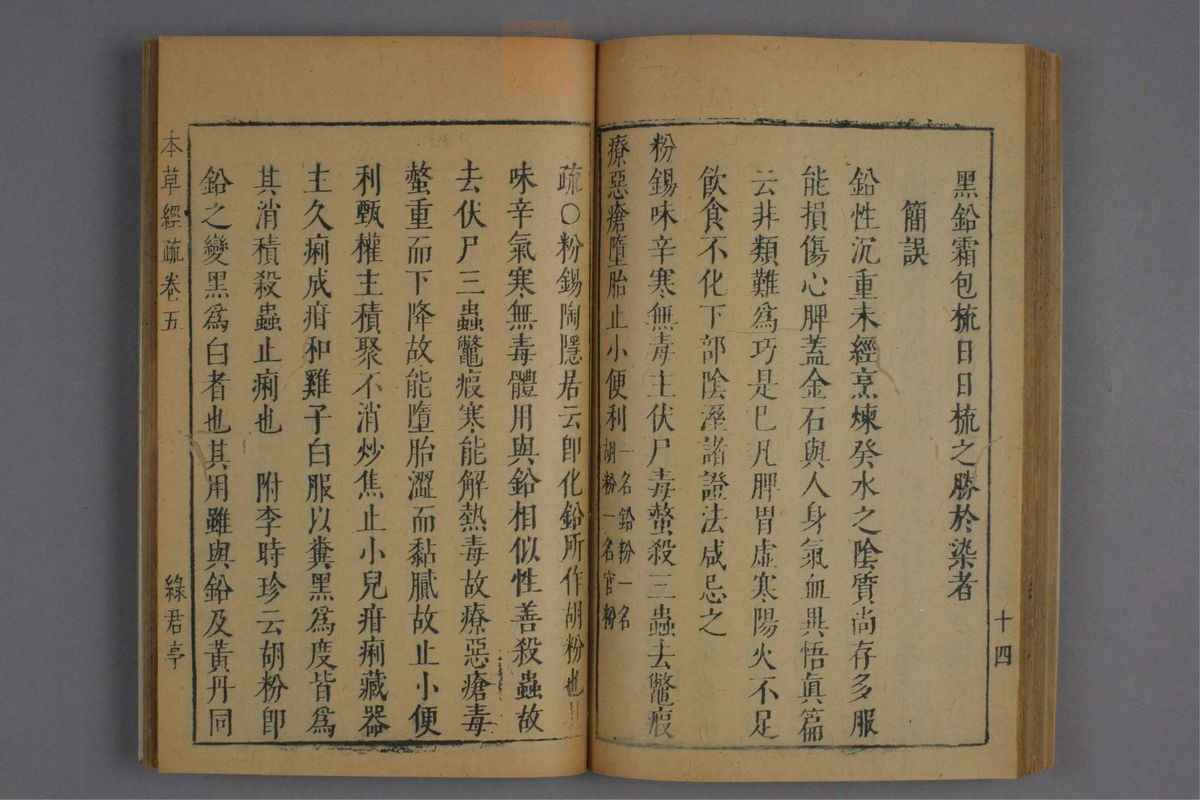 黑鉛霜包梳日日梳之勝於染者
簡誤
鉛性沉重未經烹煉癸水之陰質尚存多服
能損傷心脾蓋金石與人身氣血異悟眞篇
云非類難爲巧是巳凡脾胃虛寒陽火不足
飲食不化下部陰溼諸證法咸忌之
粉錫味辛寒無毒主伏尸毒螫殺三蟲去鼈瘕
療惡瘡墮胎止小便利一名鉛粉一名胡粉一名官粉
十四
疏○粉錫陶隱居云卽化鉛所作胡粉也其
味辛氣寒無毒體用與鉛相似性善殺蟲故
去伏尸三蟲鼈瘕寒能解熱毒故療惡瘡毒
螫重而下降故能墮胎澀而黏膩故止小便
利甄權主積聚不消炒焦止小兒疳痢藏器
主久痢成疳和雞子白服以糞黑爲度皆爲
其消積殺蟲止痢也 附李時珍云胡粉卽
鉛之變黑爲白者也其用雖與鉛及黃丹同
本草經疏卷五 綠君亭